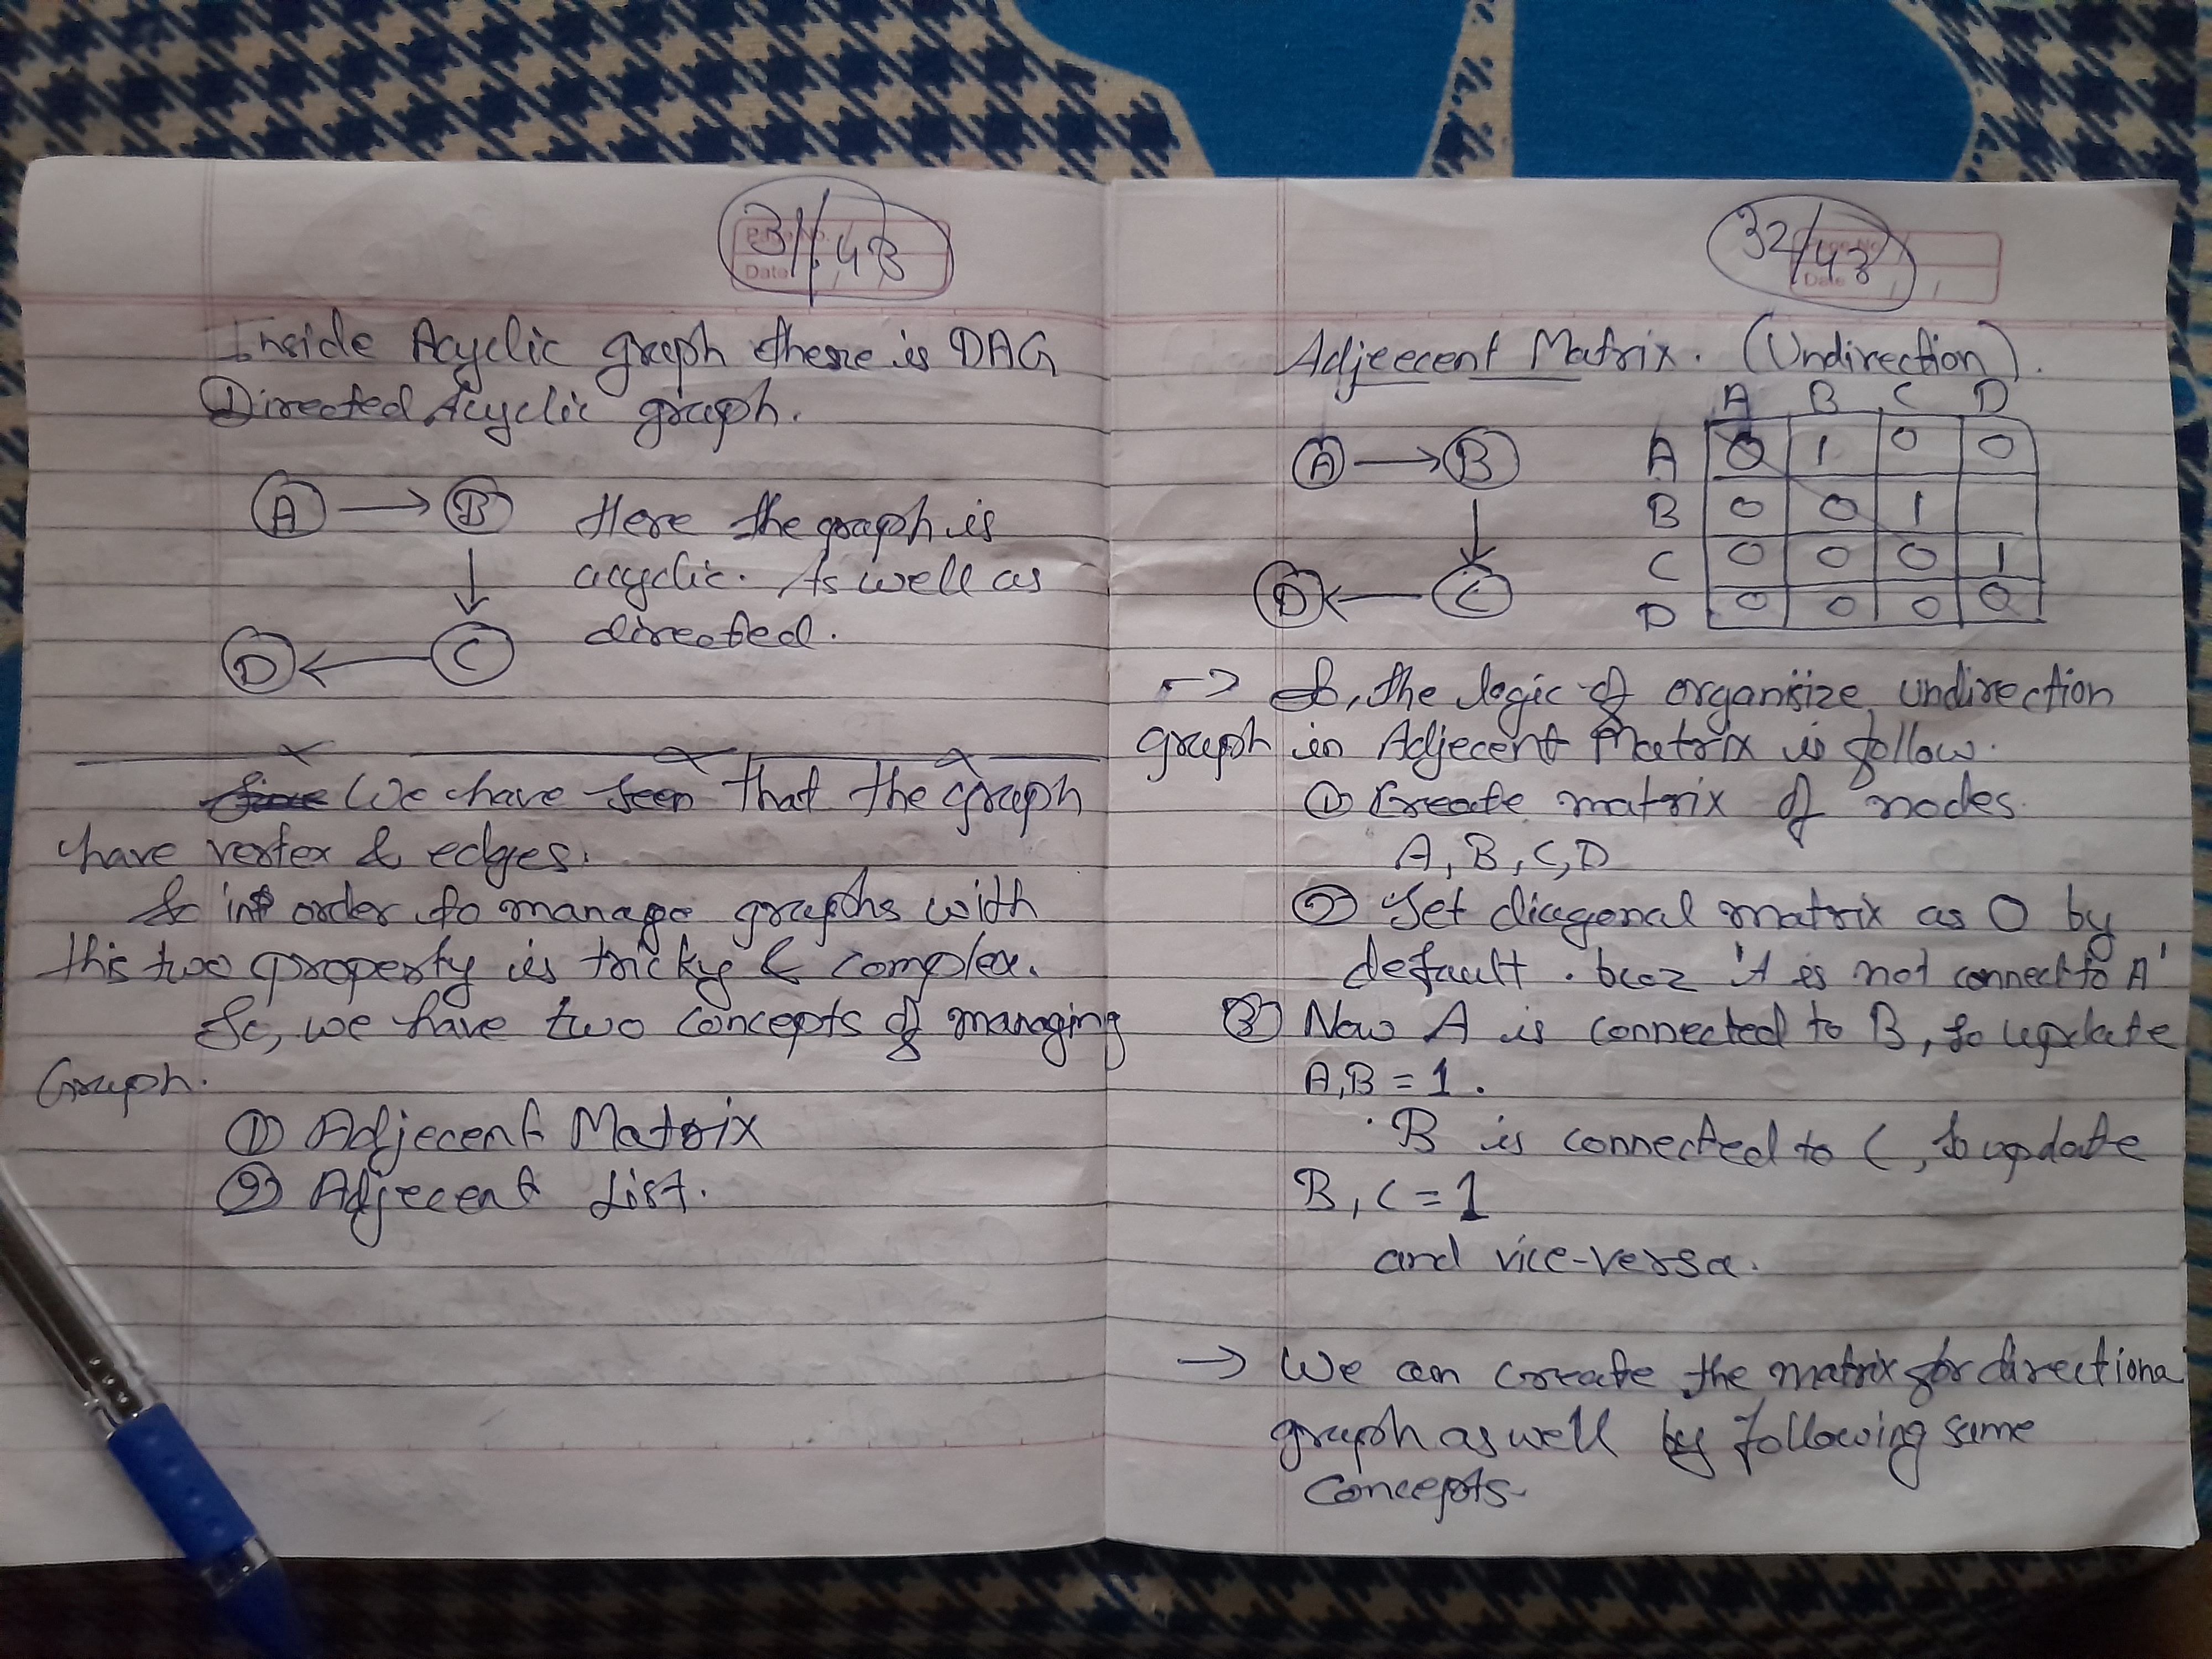 31/43
Page No.
Date
Inside Acyclic graph there is DAG
Directed Acyclic graph.
A → B
Here the graph is
acyclic. As well as
directed.
D ← C
We have seen that the graph
have vertex & edges.
So in order to manage graphs with
this two property is tricky & complex.
So, we have two concepts of managing
Graph.
① Adjecent Matrix
② Adjecent List.
32/43
Page No.
Date
Adjecent Matrix. (Undirection).
A B C D
A → B
A 0 1 0 0
B 0 0 1
D ← C
C 0 0 0 1
D 0 0 0 0
→ So, the logic of organisize undirection
graph in Adjecent Matrix is follow.
① Create matrix of nodes.
A, B, C, D
② Set diagonal matrix as 0 by
default. bcoz 'A is not connect to A'
③ Now A is connected to B, so update
A,B = 1.
B is connected to C, so update
B, C = 1
and vice-versa.
→ We can create the matrix for directiona
graph as well by following same
concepts.